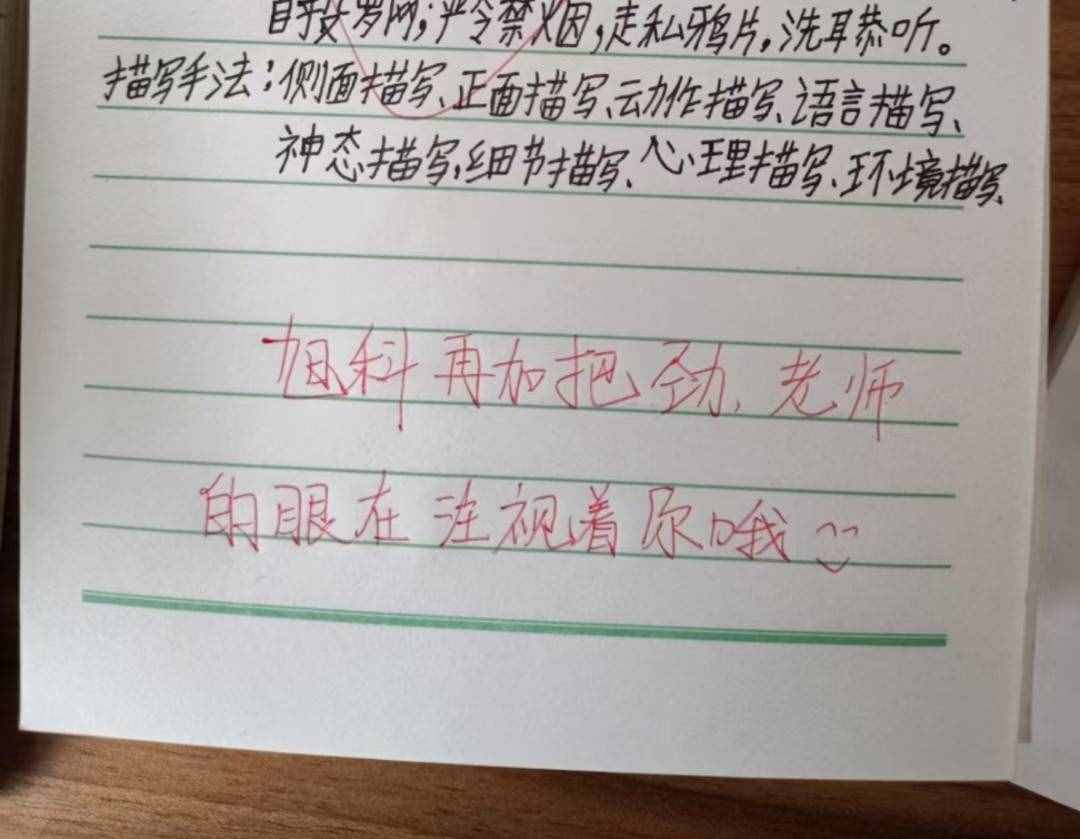 自投罗网;严令禁烟,走私鸦片,洗耳恭听。
描写手法:侧面描写、正面描写、动作描写、语言描写、
神态描写,细节描写、心理描写、环境描写、
旭科再加把劲,老师
的眼在注视着你哦